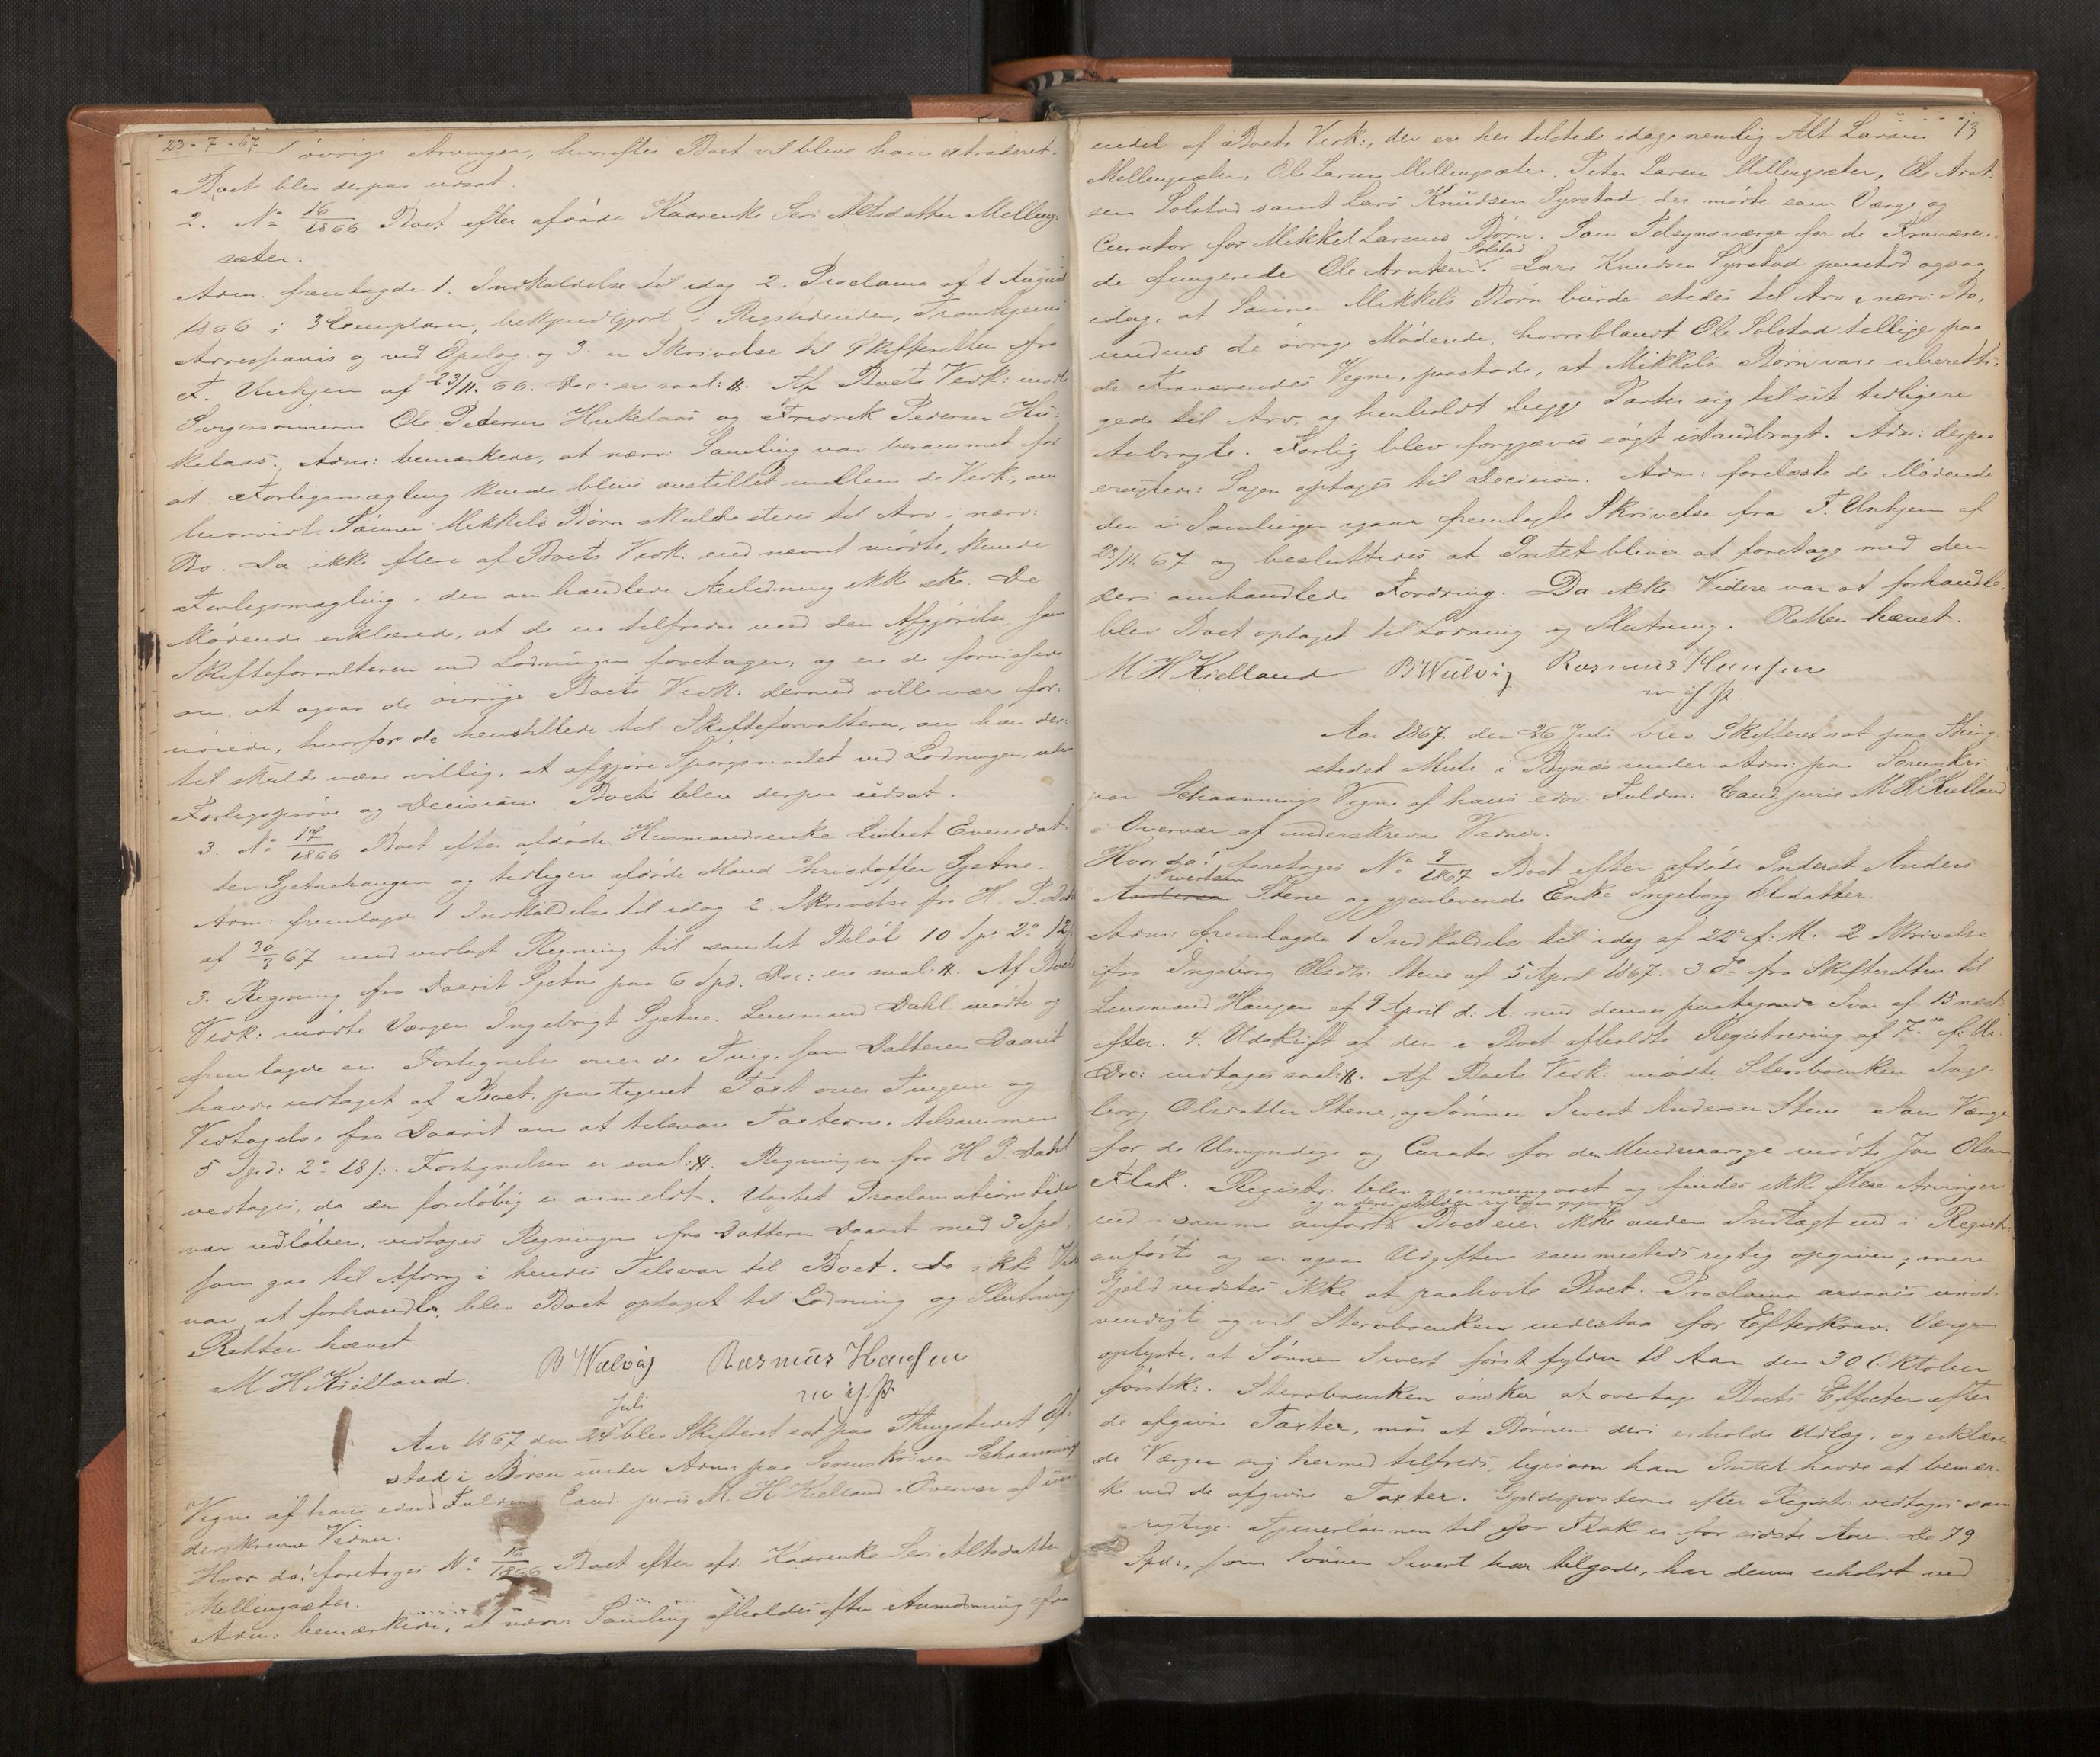 23-7-67
øvrige Arvinger, hvorefter Boet vil blive ham extraderet.
Boet blev derpaa udsat.
2. No 16/1866 Boet efter afdøde Kaarenke Seri Altsdatter Melling-
sæter.
Adm: fremlagde 1. Indkaldelse til idag 2. Proclama af 1 August
1866 i 3 Exemplarer, bekjendtgjort i Rigstidenden, Tronhjems
Adresseavis og ved Opslag og 3. en Skrivelse til Skifteretten fra
F. Unhjem af 23/11. 66. Doc: er saal: #. Af Boets Vedk: mødte
Svigersønnerne Ole Pedersen Hukelaas og Fredrik Pedersen Hu-
kelaas. Adm: bemærkede, at nærv: Samling var berammet for
at Forligsmægling kunde blive anstillet mellem de Vedk:, om
hvorvidt Sønnen Mikkels Børn skulde stedes til Arv i nærv:
Bo. Da ikke flere af Boets Vedk: end nævnt mødte, kunde
Forligsmægling i den omhandlede Anledning ikke ske. De
Mødende erklærede, at de ere tilfredse med den Afgjørelse, som
Skifteforvalteren ved Lodningen foretager, og ere de forvissede
om, at ogsaa de øvrige Boets Vedk: dermed ville være for-
nøiede, hvorfor de henstillede til Skifteforvalteren, om han der-
til skulde være villig, at afgjøre Spørgsmaalet ved Lodningen uden
Forligsprøve og Decision. Boet blev derpaa udsat.
3. No 17/1866 Boet efter afdøde Husmandsenke Embret Evensdat-
ter Gjetnehaugen og tidligere afdøde Mand Christoffer Gjetne.
Adm: fremlagde 1 Indkaldelse til idag 2. Skrivelse fra H. P. Dahl
af 30/3 67 med vedlagt Regning til samlet Beløb 10 Spd 2 12
3. Regning fra Daarit Gjetne paa 6 Spd. Doc: ere saal: #. Af Boets
Vedk: mødte Værgen Ingebrigt Gjetne. Lensmand Dahl mødte og
fremlagde en Fortegnelse over de Ting, som Datteren Daarit
havde udtaget af Boet, paategnet Taxt over Tingene og
Vedtagelse fra Daarit om at tilsvare Taxterne, tilsammen
5 Spd: 2 18 s:. Fortegnelsen er saal: #. Regningen fra H. P. Dahl
vedtages, da den foreløbig er anmeldt. Uagtet Proclamationstiden
var udløben, vedtages Regningen fra Datteren Daarit med 3 Spd,
som gaa til Afdrag i hendes Tilsvar til Boet. Da ikke Videre
var at forhandle, blev Boet optaget til Lodning og Slutning
Retten hævet.
M H Kielland. B Wulvig Rasmus Hansen
m i f. P.
Juli
Aar 1867 den 24 blev Skifteret sat paa Thingstedet
stad i Børsen under Adm: paa Sorenskriver Schaannings
Vegne af hans edsv: Fuldm: Cand. juris M. H Kielland i Overvær af un-
derskrevne Vidner.
Hvor da: foretages No 16/1866 Boet efter afd: Kaarenke Seri Altsdatter
Mellingsæter.
Adm: bemærkede, at nærv: Samling afholdes efter Anmodning fra
13
endel af Boets Vedk:, der ere her tilstede idag, nemlig Alt Larsen
Mellingsæter, Ole Larsen Mellingsæter, Peter Larsen Mellingsæter, Ole Arnt-
sen Solstad samt Lars Knudsen Syrstad, der mødte som Værge og
Curator for Mikkel Larsens Børn. Som Tilsynsværge for de Fraværen-
Solstad
de fungerede Ole Arntsen. Lars Knudsen Syrstad paastod ogsaa
idag, at Sønnen Mikkels Børn burde stedes til Arv i nærv: Bo,
medens de øvrige Mødende, hvoriblandt Ole Solstad tillige paa
de Fraværendes Vegne, paastode, at Mikkels Børn vare uberetti-
gede til Arv, og henholdt begge Parter sig til sit tidligere
Anbragte. Forlig blev forgjæves søgt istandbragt. Adm: derpaa
eragtede: Sagen optages til Decision. Adm: forelæste de Mødende
den i Samlingen igaar fremlagte Skrivelse fra F. Unhjem af
23/11. 67 og besluttedes at Intet bliver at foretage med den
deri omhandlede Fordring. Da ikke Videre var at forhandle
blev Boet optaget til Lodning og Slutning. Retten hævet.
M H Kielland B Wulvig Rasmus Hansen
m i f. P.
Aar 1867 den 26 Juli blev Skifteret sat paa Thing-
stedet Mule i Bynæs under Adm: paa Sorenskri-
ver Schaannings Vegne af hans edsv: Fuldm: Cand. juris M H Kielland
i Overvær af underskrevne Vidner.
Hvor da: foretages No 9/1867 Boet efter afdøde Inderst Anders
Sivertsen
Andersen Stene og gjenlevende Enke Ingeborg Olsdatter.
Adm: fremlagde 1 Indkaldelse til idag af 22 f: M: 2 Skrivelse
fra Ingeborg Olsdtr: Stene af 5 April 1867. 3 Do fra Skifteretten til
Lensmand Haugan af 9 April d: A: med dennes paategnede Svar af 15 næst-
efter. 4. Udskrift af den i Boet afholdte Registrering af 7de f: M:
Doc: indtages saal: #. Af Boets Vedk: mødte Stervboenken Inge-
borg Olsdatter Stene, og Sønnen Sivert Andersen Stene. Som Værge
for de Umyndige og Curator for den Mindreaarige mødte Jon Olsen
Flak. Registr: blev gjennemgaaet og findes ikke flere Arvinger
og er deres Alder rigtigen opgiven
end i samme anførte. Boet eier ikke anden Indtægt end i Registr:
anført og er ogsaa Udgiften sammesteds rigtig opgiven; mere
Gjeld vidstes ikke at paahvile Boet. Proclama ansaaes unød-
vendigt og vil Stervboenken indestaa for Efterkrav. Værgen
oplyste, at Sønnen Sivert først fylder 18 Aar den 30 Oktober
førstk:. Stervboenken ønsker at overtage Boets Effecter efter
de afgivne Taxter, mod at Børnene deri erholde Udlæg, og erklære-
de Værgen sig hermed tilfreds, ligesom han Intet havde at bemær-
ke ved de afgivne Taxter. Gjeldsposterne efter Registr: vedtages som
rigtige. Tjenerlønnen til Jon Flak er for sidste Aar. De 79
Spd:, som Sønnen Sivert har tilgode, har denne erholdt ved